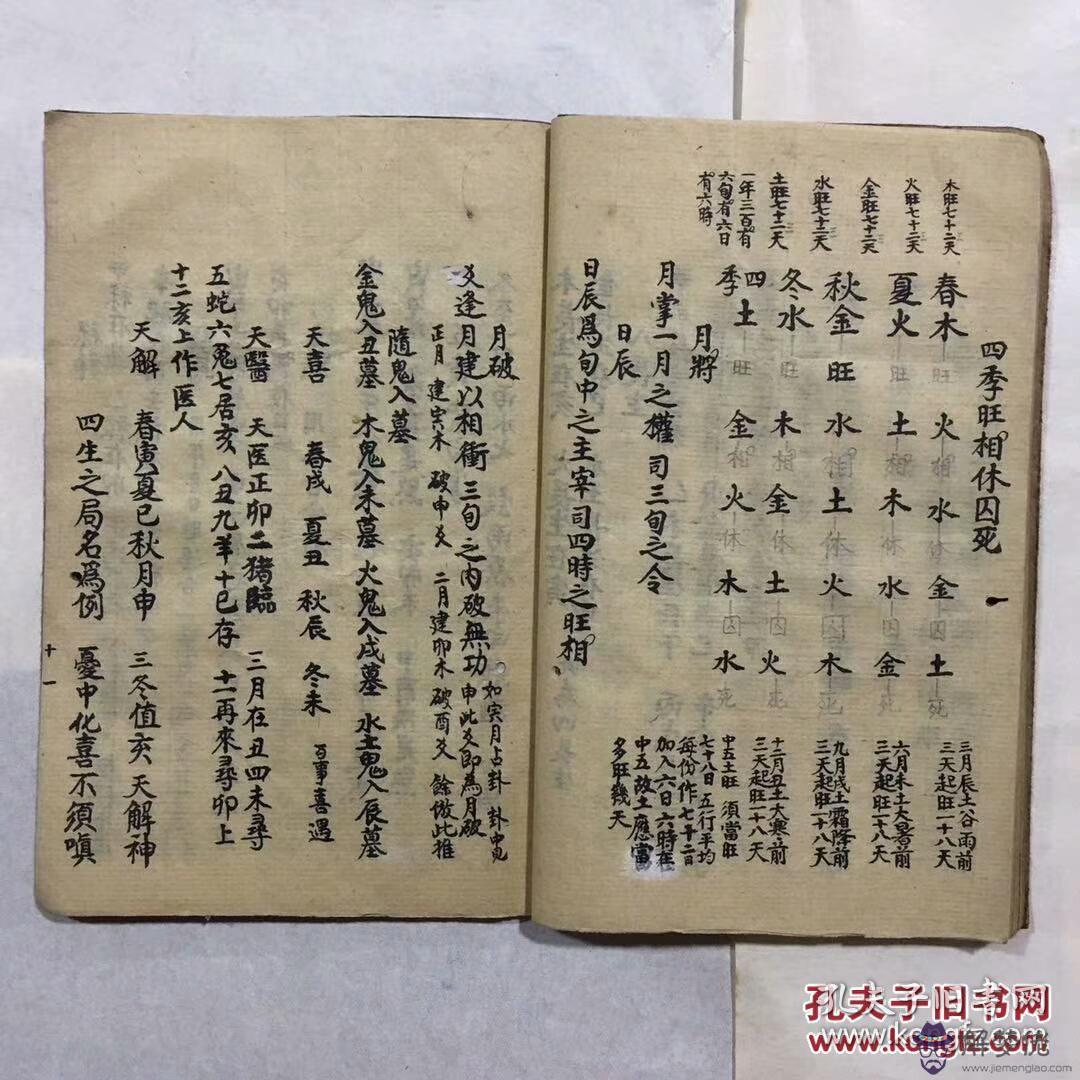 四季旺相休囚死
木旺七十二天
春木旺 火相 水休 金囚 土死
三月辰土谷雨前
三天起旺一十八天
火旺七十二天
夏火旺 土相 木休 水囚 金死
六月未土大暑前
三天起旺一十八天
金旺七十二天
秋金旺 水相 土休 火囚 木死
九月戌土霜降前
三天起旺一十八天
水旺七十二天
冬水旺 木相 金休 土囚 火死
十二月丑土大寒前
三天起旺一十八天
土旺七十二天
四季土旺 金相 火休 木囚 水死
中五土旺 須當旺
七十八日 五行平均
每份作七十二日
加入六日六時在
中五故土應當
多旺幾天
一年三百有
六旬有六日
有六時
月將
月掌一月之權 司三旬之令
日辰
日辰爲旬中之主宰司四時之旺相
月破
爻逢月建以相衝 三旬之內破無功
如寅月占卦 卦中見
申此爻即為月破
正月 建寅木 破申爻 二月建卯木破酉爻 餘倣此推
隨鬼入墓
金鬼入丑墓 木鬼入未墓 火鬼入戌墓 水土鬼入辰墓
天喜 春戌 夏丑 秋辰 冬未 百事喜遇
天醫 天医正卯二猪臨 三月在丑四未尋
五蛇六兔七居亥 八丑九羊十巳存 十一再來尋卯上
十二亥上作医人
天解 春寅夏巳秋月申 三冬值亥天解神
四生之局名爲例 憂中化喜不須嗔
十一
孔夫子旧书网
www.kongfz.com
解梦优
www.jiemenglao.com